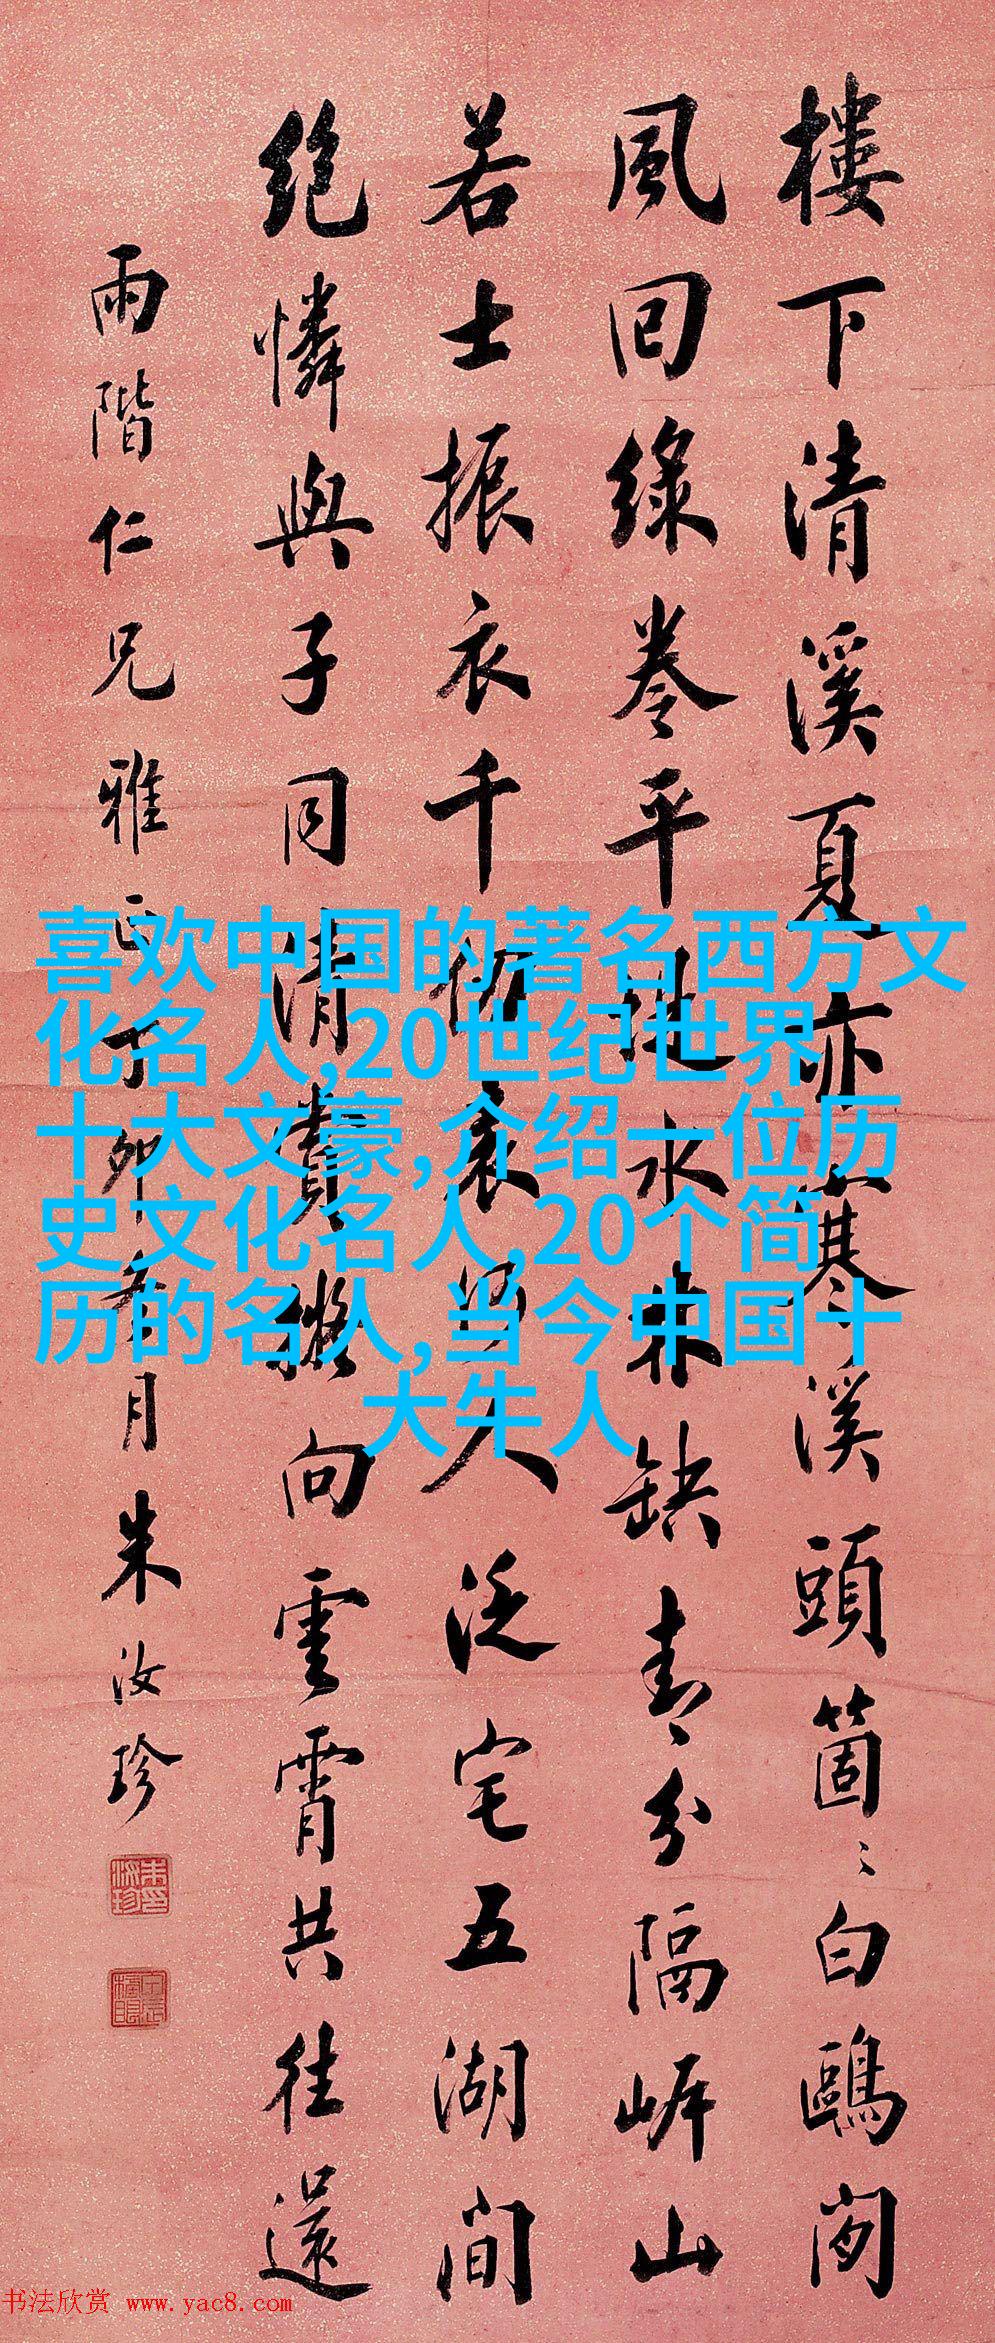 樓下清溪夏亦寒溪頭箇〻白鷗閑
風回綠卷平堤水林缺青分隔岸山
若士振衣千仞表何人泛宅五湖間
絕憐與子同清賞擬向雲霄共往還
雨階仁兄雅正丁卯春月朱汝珍
喜欢中国的著名西方文
化名人,20世纪世界
十大文豪,介绍一位历
史文化名人,20个简
历的名人,当今中国十
大牛人
书法欣赏 www.yac8.com